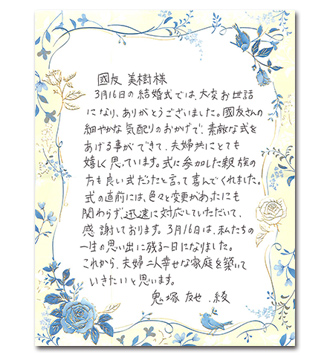 國友 美樹様
3月16日の結婚式では、大変お世話
になり、ありがとうございました。國友さんの
細やかな気配りのおかげで、素敵な式を
あげる事ができて、夫婦共にとても
嬉しく思っています。式に参加した親族の
方も良い式だったと言って喜んでくれました。
式の直前には、色々変更があったにも
関わらず迅速に対応していただいて、
感謝しております。3月16日は、私たちの
一生の思い出に残る一日になりました。
これから、夫婦二人幸せな家庭を築いて
いきたいと思います。
兎塚 綾